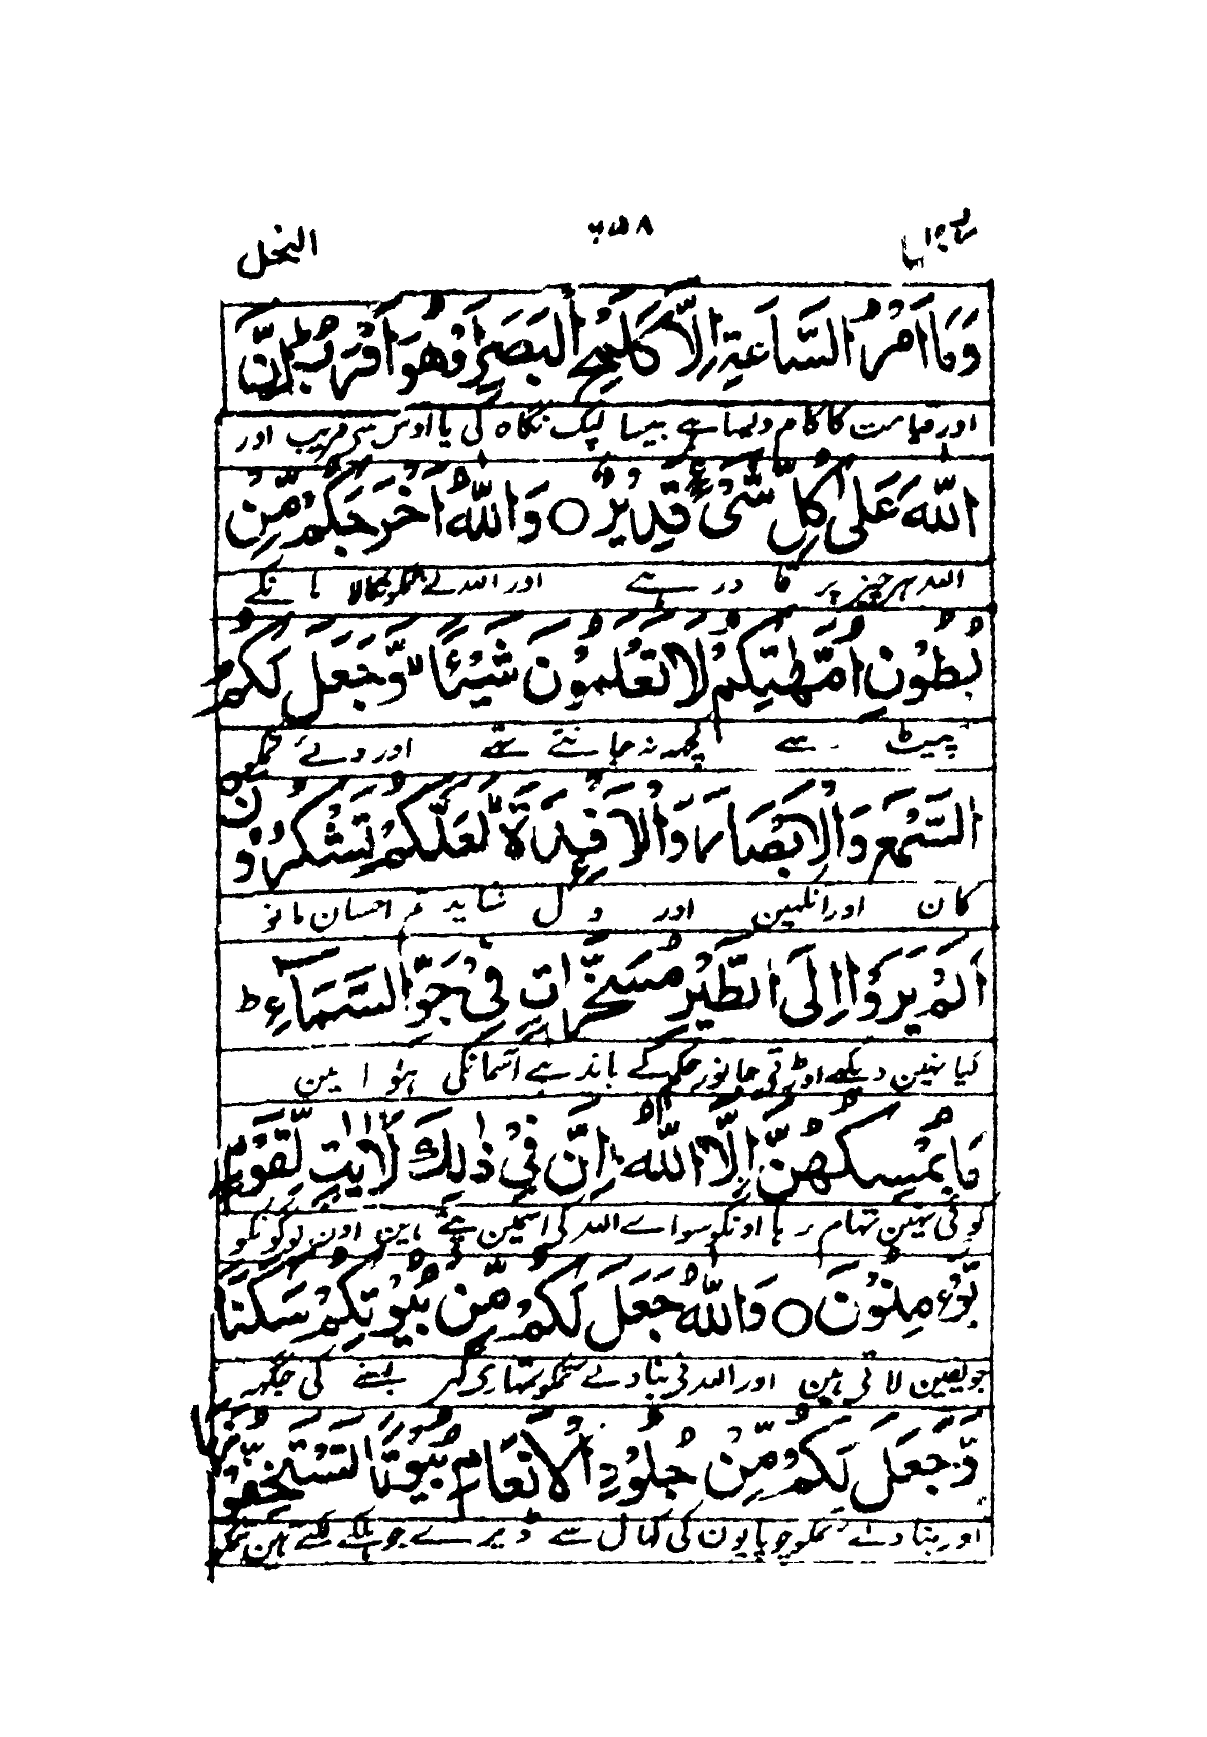 النحل
وَمَا اَمْرُ السَّاعَةِ اِلَّا كَلَمْحِ الْبَصَرِ اَوْ هُوَ اَقْرَبُ ؕ اِنَّ
اور قیامت کا کام ویسا ہے جیسا لپک نگاہ کی یا اوس سے قریب اور
اللّٰهَ عَلٰى كُلِّ شَىْءٍ قَدِيْرٌ ○ وَاللّٰهُ اَخْرَجَكُمْ مِّنْ
اللہ ہر چیز پر قادر ہے اور اللہ نے تمکو نکالا ما نکے
بُطُوْنِ اُمَّهٰتِكُمْ لَا تَعْلَمُوْنَ شَيْـًٔا ۙ وَّجَعَلَ لَكُمُ
پیٹ سے کچھ نہ جانتے تھے اور دئے تمکو
السَّمْعَ وَالْاَبْصَارَ وَالْاَفْـِٕدَةَ ۙ لَعَلَّكُمْ تَشْكُرُوْنَ
کان اور انکہین اور دل شاید تم احسان مانو
اَلَمْ يَرَوْا اِلَى الطَّيْرِ مُسَخَّرَاتٍ فِىْ جَوِّ السَّمَآءِ ؕ
کیا نہین دیکھے اوڑتی جانور حکم کے باندہے آسمانکی ہوا مین
مَا يُمْسِكُهُنَّ اِلَّا اللّٰهُ ؕ اِنَّ فِىْ ذٰلِكَ لَاٰيٰتٍ لِّقَوْمٍ
کوئی نہین تہام رہا اونکو سواے اللہ کی اسمین پتے ہین اون لوگونکو
يُّؤْمِنُوْنَ ○ وَاللّٰهُ جَعَلَ لَكُمْ مِّنْ بُيُوْتِكُمْ سَكَنًا
جو یقین لاتی ہین اور اللہ نی بنا دئے تمکو تمہاری گہر بسنے کی جگہہ
وَّجَعَلَ لَكُمْ مِّنْ جُلُوْدِ الْاَنْعَامِ بُيُوْتًا تَسْتَخِفُّوْنَهَا
اور بنا دئے تمکو چوپایون کی کہال سے ڈیرے جو ہلکے لگتے ہین تمکو